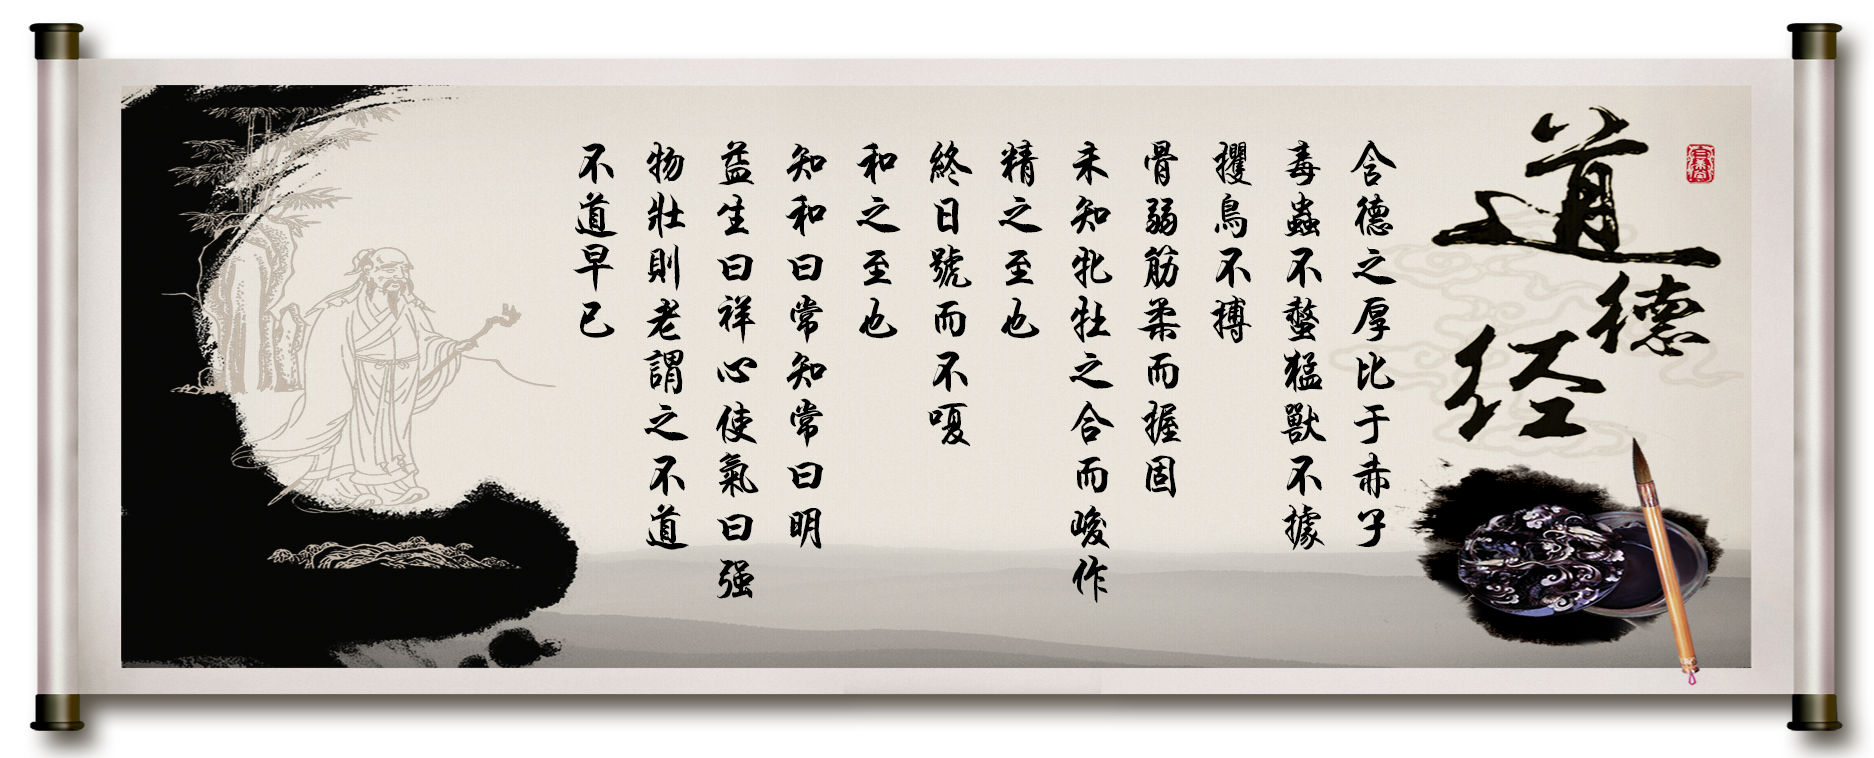 道德经
含德之厚比于赤子
毒蟲不螫猛獸不據
攫鳥不搏
骨弱筋柔而握固
未知牝牡之合而峻作
精之至也
終日號而不嗄
和之至也
知和曰常知常曰明
益生曰祥心使氣曰强
物壯則老謂之不道
不道早已